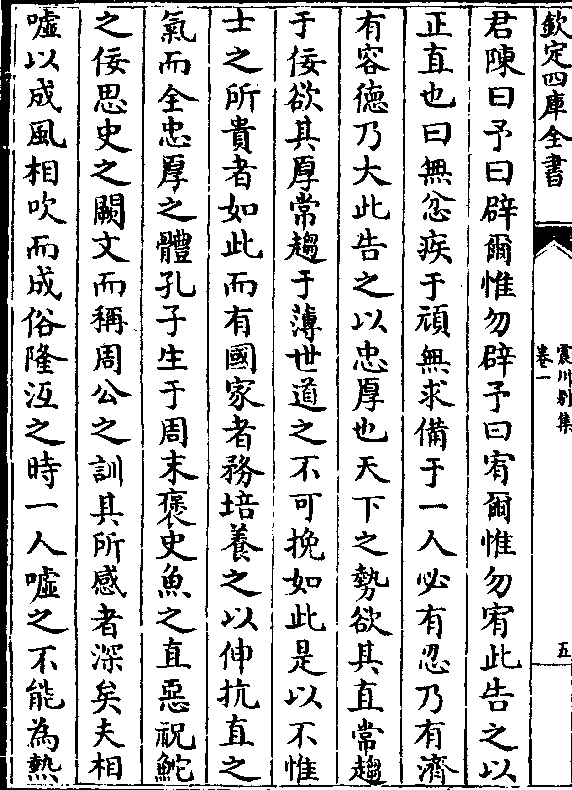 欽定四庫全書
震川別集
卷一
五
君陳曰予曰辟爾惟勿辟予曰宥爾惟勿宥此告之以
正直也曰無忿疾于頑無求備于一人必有忍乃有濟
有容德乃大此告之以忠厚也天下之勢欲其直常趨
于佞欲其厚常趨于薄世道之不可挽如此是以不惟
士之所貴者如此而有國家者務培養之以伸抗直之
氣而全忠厚之體孔子生于周末褒史魚之直惡祝鮀
之佞思史之闕文而稱周公之訓其所感者深矣夫相
噓以成風相吹而成俗隆沍之時一人噓之不能為熱